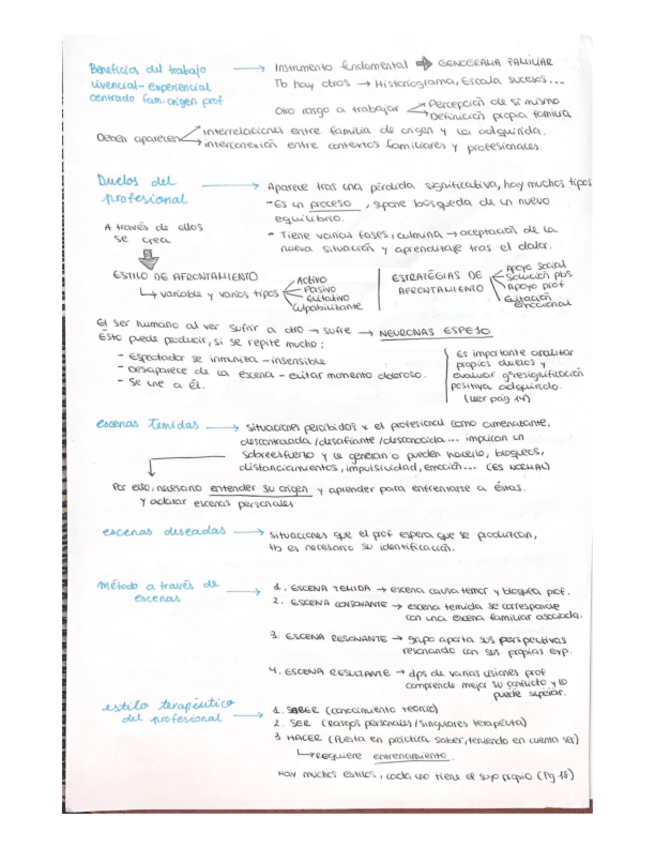 Beneficios del trabajo vivencial-experiencial centrado fam.origen prof → Instrumento fundamental ➡ GENOGRAMA FAMILIAR
Tb hay otros → Historiograma, Escala sucesos...
Otro rasgo a trabajar
Percepción de sí mismo
Definición propia familia
Deben aparecer
interrelaciones entre familia de origen y la adquirida.
interconexión entre contextos familiares y profesionales.
Duelos del profesional → Aparece tras una pérdida significativa, hay muchos tipos
- Es un proceso, supone búsqueda de un nuevo
equilibrio.
- Tiene varias fases, culmina → aceptación de la
nueva situación y aprendizaje tras el dolor.
A través de ellos
se crea
ESTILO DE AFRONTAMIENTO
↳ variable y varios tipos
Activo
Pasivo
Evitativo
Culpabilizante
ESTRATEGIAS DE
AFRONTAMIENTO
Apoyo social
Solución pbs
Apoyo prof
Evitación
emocional
El ser humano al ver sufrir a otro → sufre → NEURONAS ESPEJO
Esto puede producir, si se repite mucho:
- Espectador se inmuniza - insensible
- Desaparece de la escena - evitar momento doloroso.
- Se une a él.
Es importante analizar
propios duelos y
evaluar
positiva adquirido.
(Leer pág 14)
escenas temidas → situaciones percibidas x el profesional como amenazante,
descontrolada/desafiante/desconocida... implican un
sobreesfuerzo y le generan o pueden hacerlo, bloqueos,
distanciamientos, impulsividad, emoción... (ES NORMAL)
Por eso, necesario entender su origen y aprender para enfrentarse a éstas.
y aclarar escenas personales
escenas deseadas → situaciones que el prof espera que se produzcan,
tb es necesario su identificación.
método a través de
escenas →
1. ESCENA TEMIDA → escena causa temor y bloquea prof.
2. ESCENA CONSONANTE → escena temida se corresponde
con una escena familiar asociada.
3. ESCENA RESONANTE → grupo aporta sus perspectivas
resonando con sus propias exp.
4. ESCENA RESULTANTE → dps de varias visiones prof
comprende mejor su conflicto y lo
puede superar.
estilo terapéutico
del profesional →
1. SABER (conocimiento teórico)
2. SER (Rasgos personales/singulares terapeuta)
3 HACER (Puesta en práctica saber, teniendo en cuenta ser)
↳ requiere entrenamiento.
Hay muchos estilos, cada uno tiene el suyo propio (Pg 18)